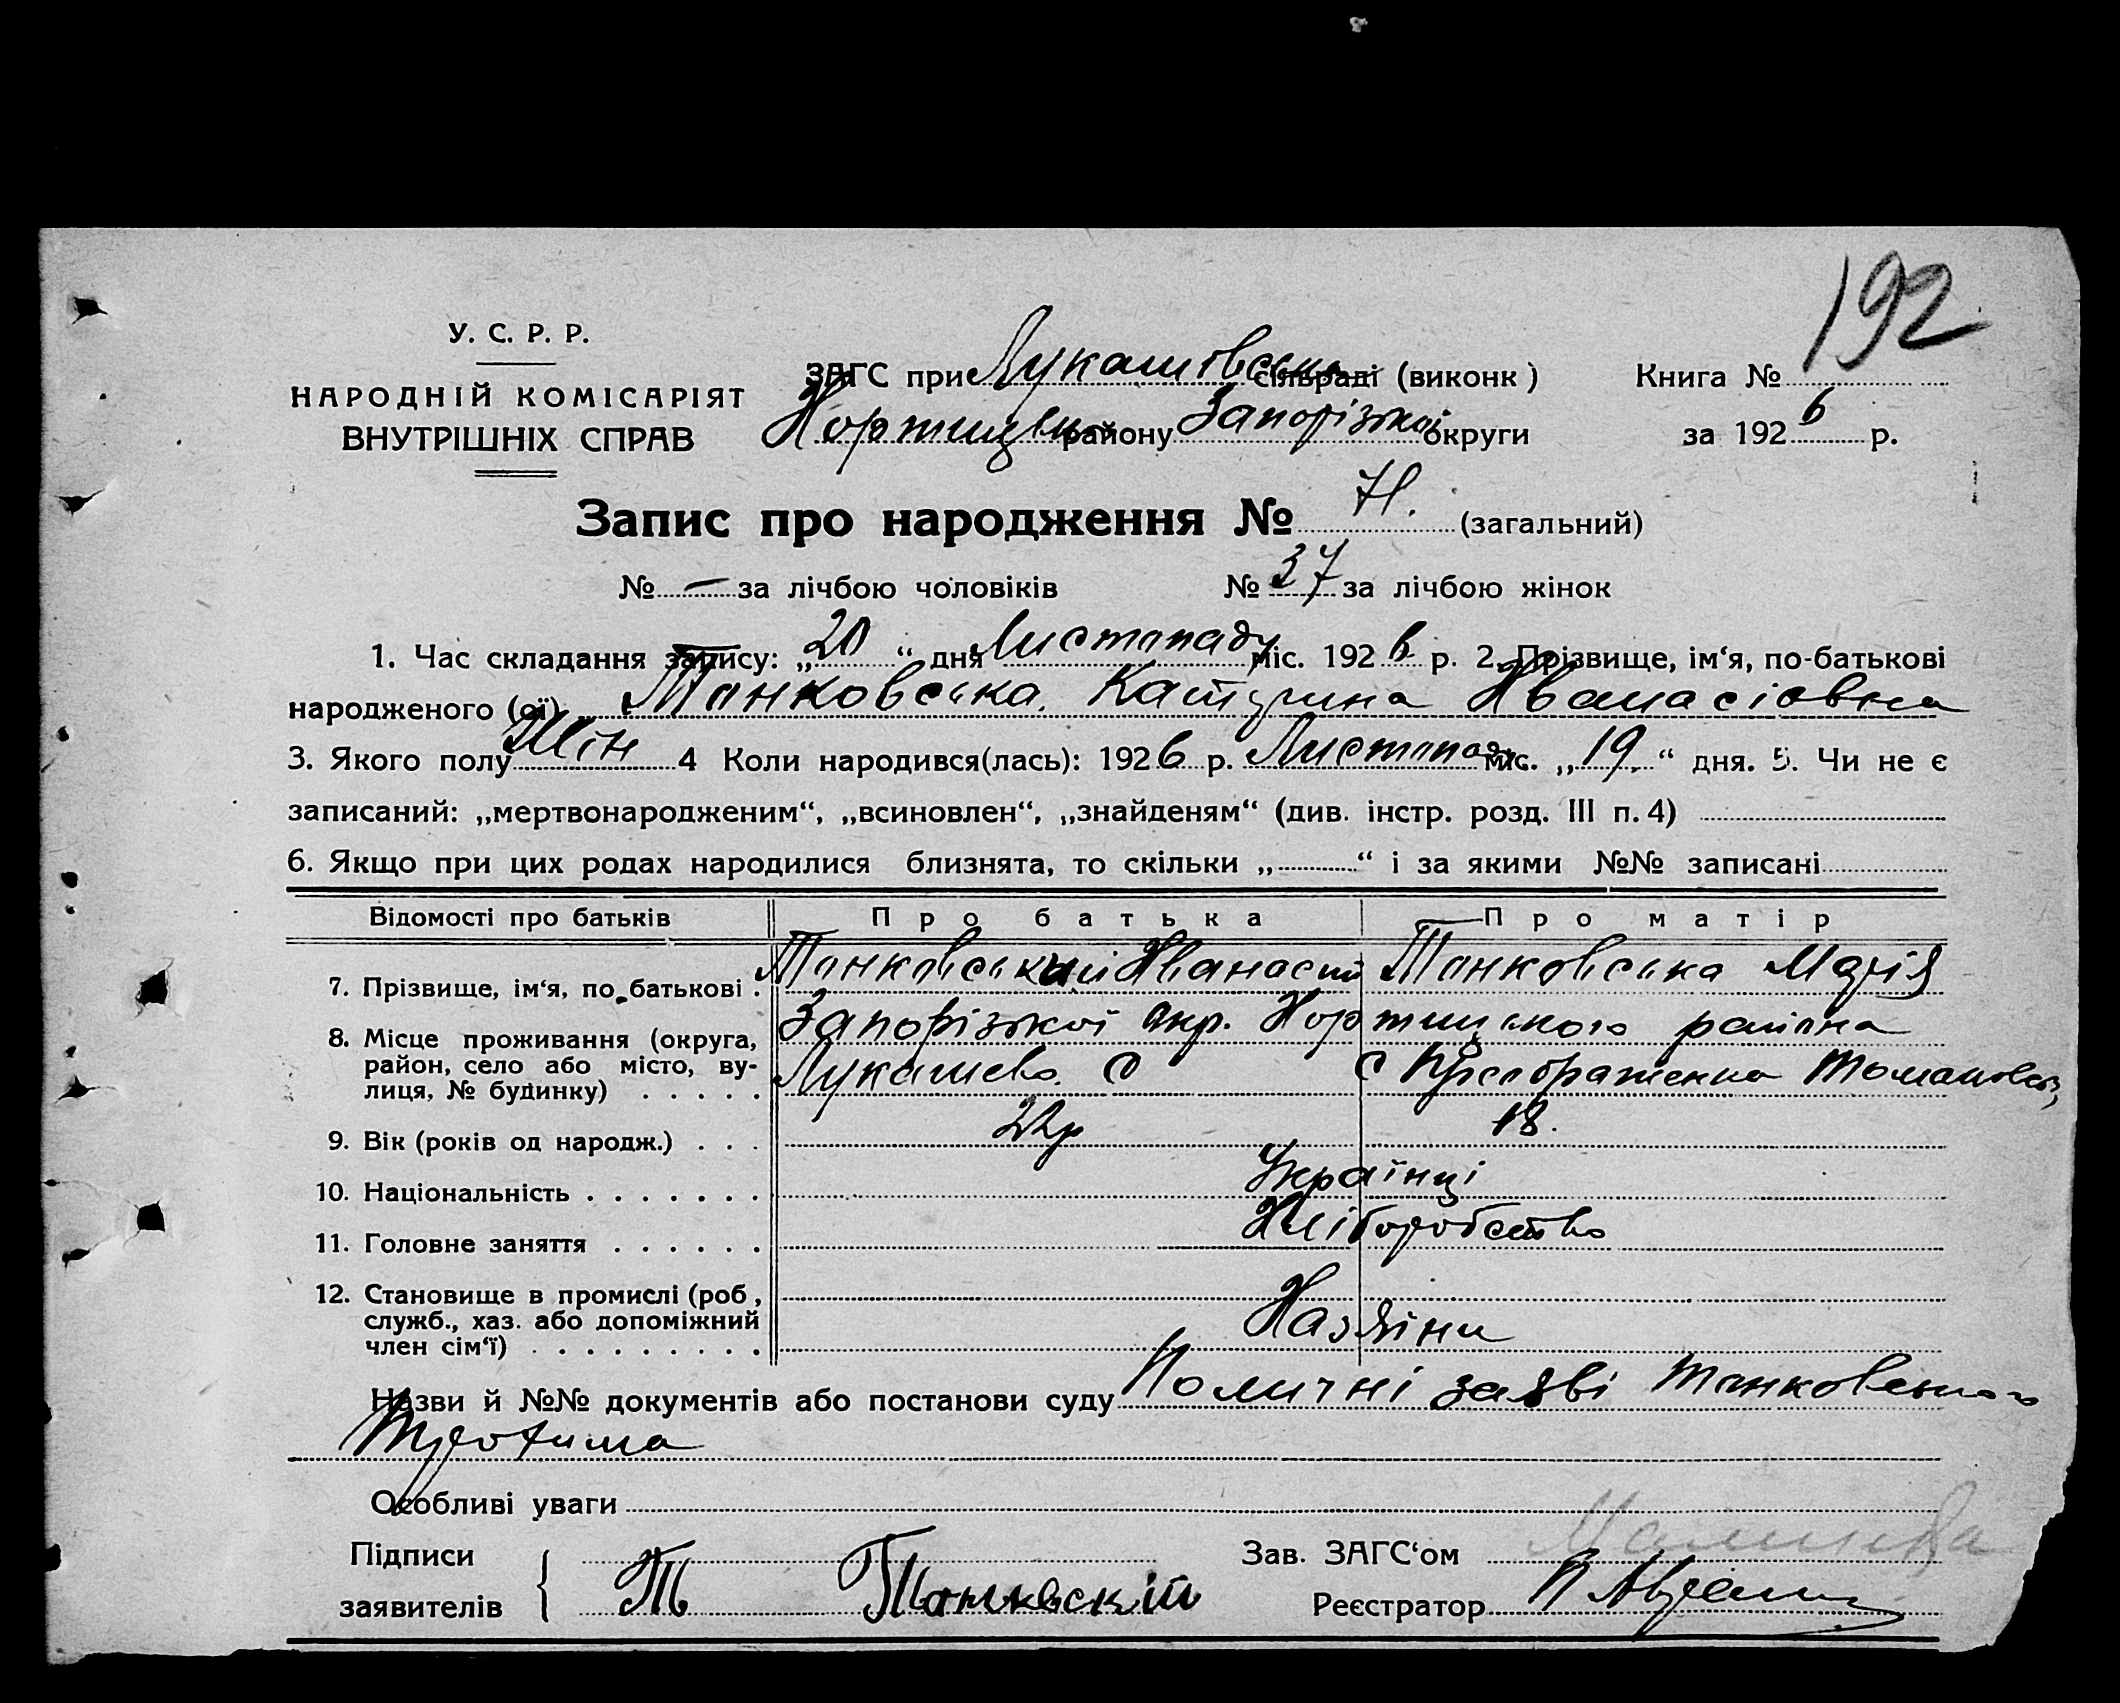 192
У. С. Р. Р.
НАРОДНІЙ КОМІСАРІЯТ
ВНУТРІШНІХ СПРАВ
ЗАГС при Лукашовськ сільраді (виконк) Книга №
Хортицьк району Запорізької округи за 1926 р.
Запис про народження № 71. (загальний)
№ – за лічбою чоловіків № 37 за лічбою жінок
1. Час складання запису: „20“ дня Листопаду міс. 1926 р. 2. Прізвище, ім‘я, по-батькові
народженого (ої) Танковська Катерина Хванасіовна
3. Якого полу Жін 4 Коли народився(лась): 1926 р. Листопад міс. „19“ дня. 5. Чи не є
записаний: „мертвонародженим“, „всиновлен“, „знайденям“ (див. інстр. розд. III п. 4)
6. Якщо при цих родах народилися близнята, то скільки „ “ і за якими №№ записані
Відомості про батьків Про батька Про матір
7. Прізвище, ім‘я, по-батькові . Танковський Хванасий Танковська Марія
8. Місце проживання (округа, район, село або місто, вулиця, № будинку) Запорізької окр. Хортицького района
Лукашево С С Преображенка Томаковськ
9. Вік (років од народж.) . . . 22р 18.
10. Національність . . . . . . . Українці
11. Головне заняття . . . . . . Хліборобство
12. Становище в промислі (роб, служб., хаз. або допоміжний член сім‘ї) . . . . . . . . . Хазяїни
Назви й №№ документів або постанови суду По личні заяві Танковського
Трофима
Особливі уваги
Підписи заявителів Т Танковскій
Зав. ЗАГС‘ом
Реєстратор